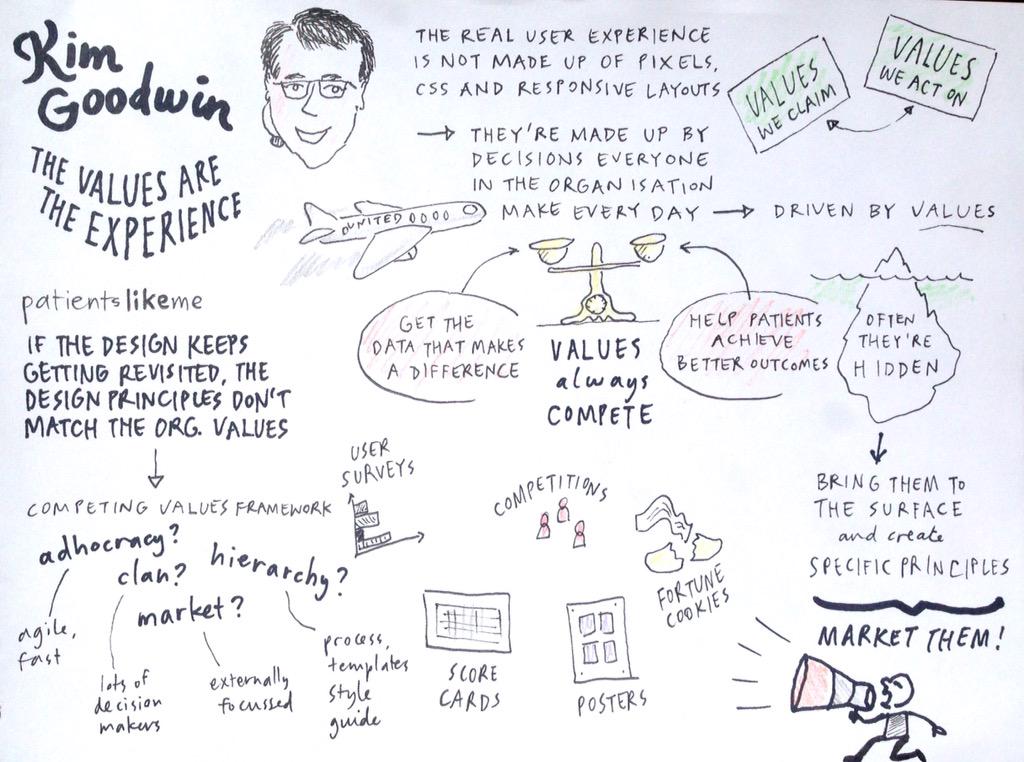 Kim
Goodwin
THE VALUES ARE
THE EXPERIENCE
THE REAL USER EXPERIENCE
IS NOT MADE UP OF PIXELS,
CSS AND RESPONSIVE LAYOUTS
→ THEY'RE MADE UP BY
DECISIONS EVERYONE
IN THE ORGANISATION
MAKE EVERY DAY → DRIVEN BY VALUES
VALUES
WE CLAIM
VALUES
WE ACT ON
UNITED
patientslikeme
IF THE DESIGN KEEPS
GETTING REVISITED, THE
DESIGN PRINCIPLES DON'T
MATCH THE ORG. VALUES
GET THE
DATA THAT MAKES
A DIFFERENCE
VALUES
always
COMPETE
HELP PATIENTS
ACHIEVE
BETTER OUTCOMES
OFTEN
THEY'RE
HIDDEN
COMPETING VALUES FRAMEWORK
adhocracy?
clan?
hierarchy?
market?
agile,
fast
lots of
decision
makers
externally
focussed
process,
templates
style
guide
USER
SURVEYS
COMPETITIONS
FORTUNE
COOKIES
SCORE
CARDS
POSTERS
BRING THEM TO
THE SURFACE
and create
SPECIFIC PRINCIPLES
MARKET THEM!